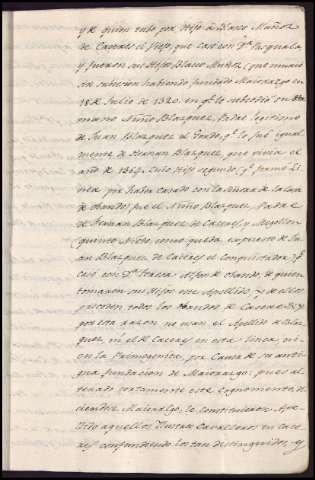 y de quien tubo por Hijo a Blasco Muñoz
de Caceres el viejo, que casó con Dª Pasquala
y fueron sus Hijos Blasco Muñoz, que murio
sin subcesion habiendo fundado Maiorazgo en
18 de Julio de 1320. en qe le subcedio su Her
mano Nuño Blazquez, Padre legitimo
de Juan Blazquez el qe lo fué igual
mente de Hernan Blazquez, que vivia el
año de Hijo segundo, qe formó Li
nea por haber casado con la Señora de la Casa
de obando, fue el Nuño Blazquez Padre
de Hernan Blazquez de Caceres, y Mogollon
quinto Nieto, como queda expuesto de Ju
an Blazquez de Caceres el Conquistador, qe
casó con Dª Teresa Alfon de obando, de quien
tomaron sus Hijos este Apellido, y de ellos
proceden todos los obandos de Caceres, y
por esta razon no usan el Apellido de Blaz
quez, ni el de Caceres en esta linea ni
en la Primogenita, por causa de su anti
gua fundacion de Maiorazgo; pues al
terado ciertamente este cognomento de
Maiorazgo, le constituieron Ape
llido aquellos Ilustres Cavalleros en Cace
res confundiendo los tan distinguidos, y